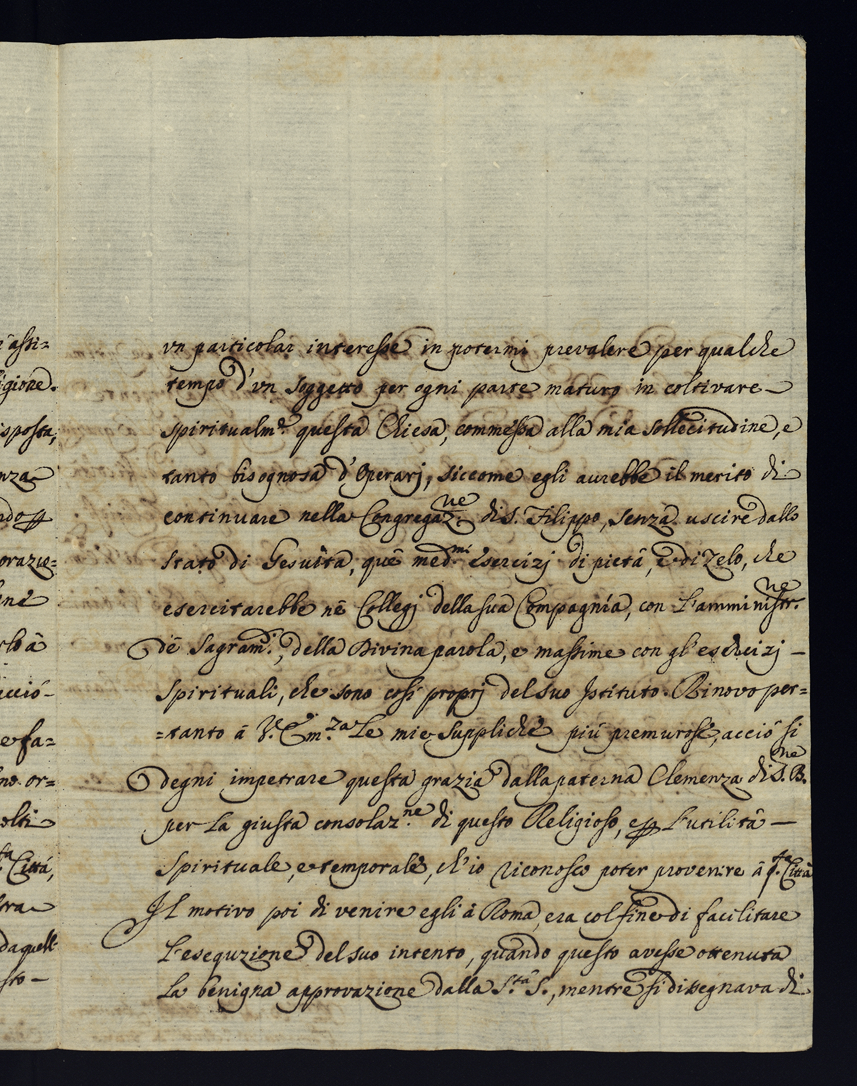 vn particolar interesse in potermi prevalere per qualche
tempo d'vn soggetto per ogni parte maturo in coltivare
spiritualm.e questa Chiesa, commessa alla mia sollecitudine, e
tanto bisognosa d'Operarj, siccome egli aurebbe il merito di
continuare nella Congregaz.ne di S. Filippo, senza uscire dallo
stato di Gesuita, què med.mi esercizj di pietà, e di Zelo, che
esercitarebbe nè Collegj della sua Compagnía, con l'amministr.ne
dè Sagram.i, della Divina parola, e massime con gl'esercizj
Spirituali, che sono così proprj del suo Jstituto. Rinovo per=
=tanto à V. Em.za Le mie Suppliche più premurose, acciò si
degni impetrare questa grazia dalla paterna Clemenza di S. B.ne
per La giusta consolaz.ne di questo Religioso, e L'utilità
Spirituale, e temporale, ch'io riconosco poter provenire à q.ta Città
Jl motivo poi di venire egli à Roma, era col fine di facilitare
L'esequzione del suo intento, quando questo avesse ottenuta
La benigna approvazione dalla S.tà S., mentre si disegnava di
assi=
igione.
isposta,
nza
orazio=
e fa=
no or=
olti
Città,
da quell
sto